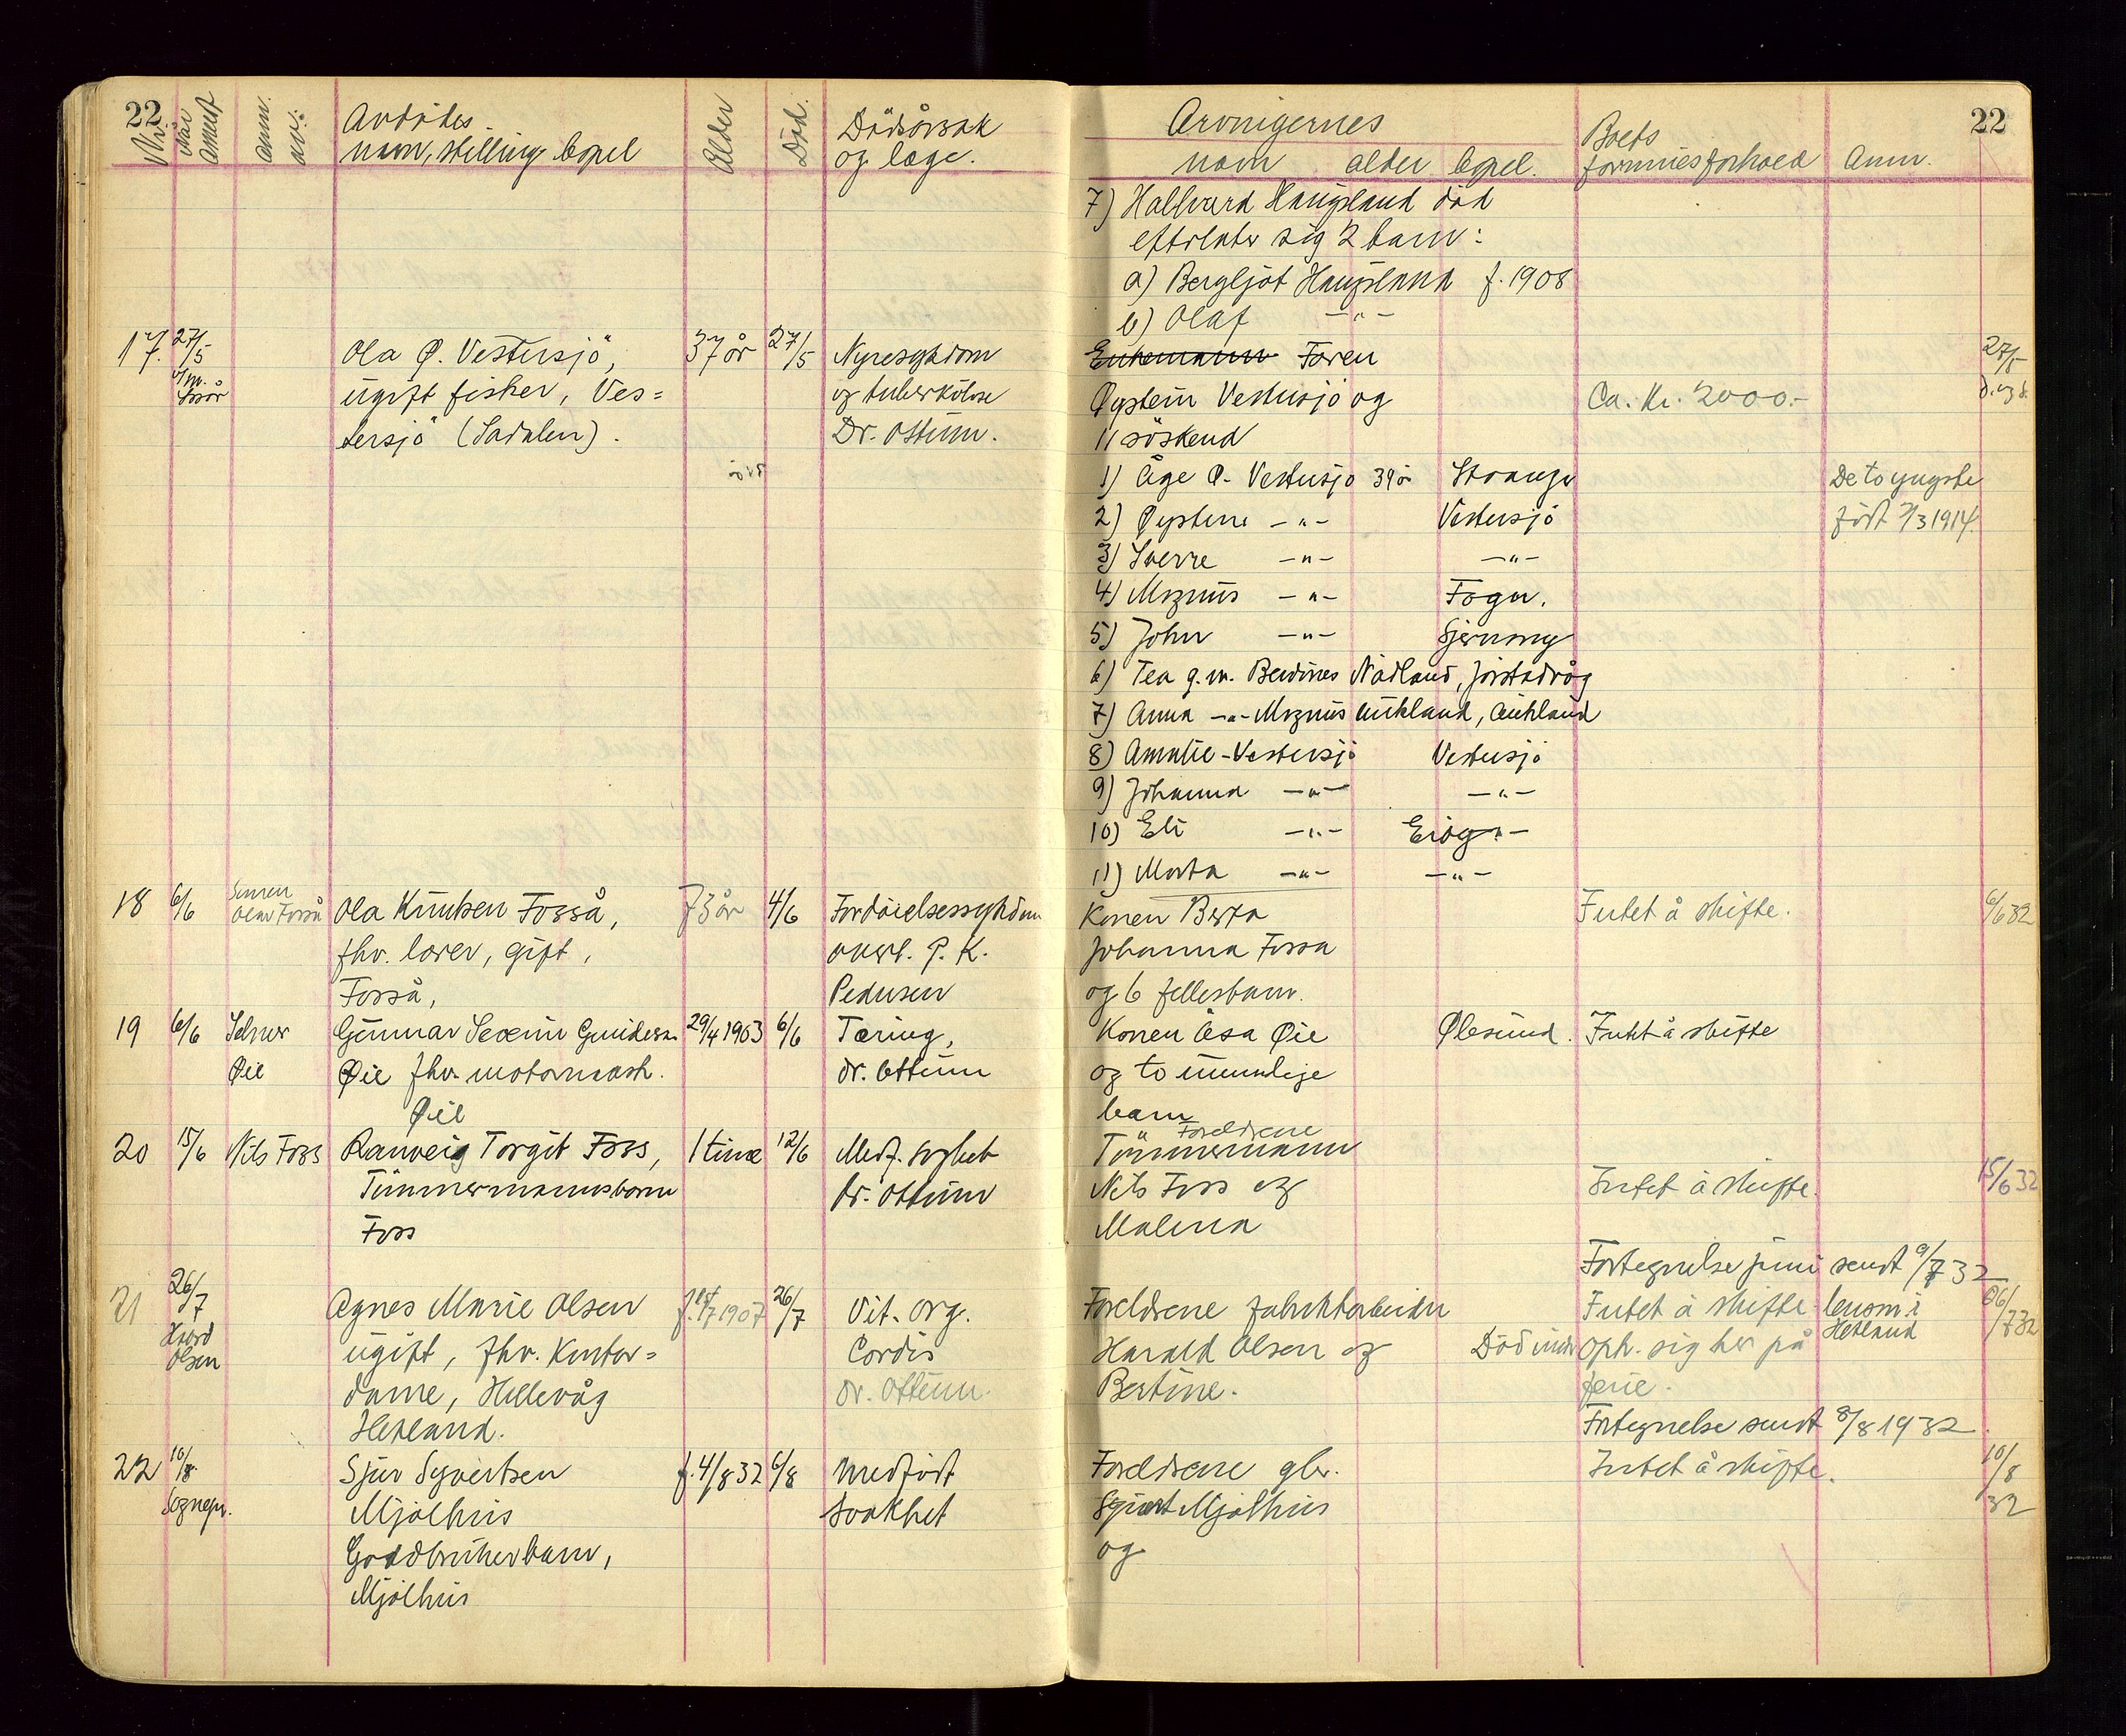 22
22
Nr.
Når
anmelt
anm.
av:
Avdödes
navn, stilling, bopel
Alder
Död.
Dödsårsak
og læge.
Arvingernes
navn alder bopel.
Boets
formuesforhold
Anm.
7) Hallvard Haugsland död
efterlater sig 2 barn:
a) Bergljot Haugsland f. 1908
b) Olaf -"-
17. 27/5 Ola Ø. Vestersjö, 37 år 27/5 Nyresykdom Enkemann Faren 27/5
ugift fisker, Ves= og tuberkulose Øystein Vestersjö og Ca. kr. 2000.-
tersjö (Sadalen). Dr. Ottum. 11 söskend
1) Åge Ø. Vestersjö 39 år Strange De to yngste
2) Øysteine -"- Vestersjö födt 7/3 1914.
3) Sverre -"- -"-
4) Magnus -"- Fogn.
5) John -"- Sjernarøy
6) Tea g.m. Berdines Nådland, Jörstadvåg
7) Anna -"- Magnus Aukland, Aukland
8) Amalie - Vestersjö Vestersjö
9) Johanna -"- -"-
10) Eli -"- -"-
11) Marta -"- -"-
18 6/6 Sønnen Ola Knutsen Fosså, 73 år 4/6 Fordöielsessykdom Konen Berta Intet å skifte. 6/6 32
Olav Fosså fhv. lærer, gift, P. K. Johanna Fossa
Fosså, Pedersen og 6 fellesbarn.
19 6/6 Gunnar Severin Gundersen 29/4 1903 6/6 Tæring, Konen Åsa Øie Ølesund. Intet å skifte
Øie Øie fhv. motormask. dr. Ottum og to umyndige
Øie barn
20 15/6 Nils Foss Ranveig Torgit Foss, 1 time 12/6 Medf. svakhet Foreldrene
Tömmermann
Tömmermannsbarn Dr. Ottum Nils Foss og Intet å skifte. 15/6 32
Foss Malena
Fortegnelse juni sendt 9/7 32
21 26/7 Agnes Marie Olsen f. 1/7 1907 26/7 Vit. org. Foreldrene fabrikkarbeider Intet å skifte. lensm. i 26/7 32
Harald ugift, fhv. kontor= Cordis Harald Olsen og Död under oph. sig her på Hetland
Olsen dame, Hillevåg dr. Ottum. Bertine. ferie.
Hetland. Fortegnelse sendt 8/8 1932
22 10/8 Sjur Syvertsen f. 4/8 32 6/8 Medfödt Foreldrene gbr. Intet å skifte. 10/8
Sognepr. Mjølhus svakhet Sjvert Mjølhus 32
Gårdbrukerbarn, og
Mjølhus